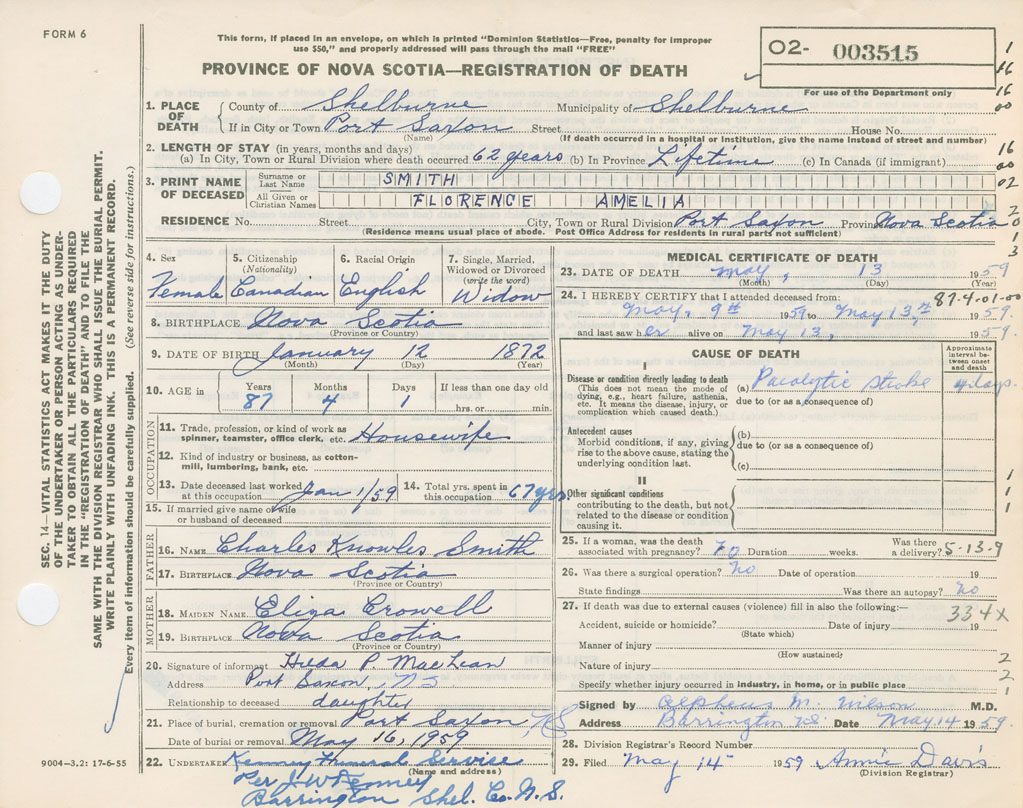 FORM 6
This form, if placed in an envelope, on which is printed "Dominion Statistics—Free, penalty for improper
use $50," and properly addressed will pass through the mail "FREE"
PROVINCE OF NOVA SCOTIA—REGISTRATION OF DEATH
02- 003515
For use of the Department only
1. PLACE OF DEATH
County of Shelburne Municipality of Shelburne
If in City or Town Port Saxon Street House No.
(Name) (If death occurred in a hospital or institution, give the name instead of street and number)
2. LENGTH OF STAY (in years, months and days)
(a) In City, Town or Rural Division where death occurred 62 years (b) In Province Lifetime (c) In Canada (if immigrant)
3. PRINT NAME OF DECEASED
Surname or Last Name SMITH
All Given or Christian Names FLORENCE AMELIA
RESIDENCE No. Street City, Town or Rural Division Port Saxon Province Nova Scotia
(Residence means usual place of abode. Post Office Address for residents in rural parts not sufficient)
4. Sex
Female
5. Citizenship
(Nationality)
Canadian
6. Racial Origin
English
7. Single, Married,
Widowed or Divorced
(write the word)
Widow
8. BIRTHPLACE Nova Scotia
(Province or Country)
9. DATE OF BIRTH January 12 1872
(Month) (Day) (Year)
10. AGE in
Years Months Days If less than one day old
87 4 1 hrs. or min.
OCCUPATION
11. Trade, profession, or kind of work as
spinner, teamster, office clerk, etc. Housewife
12. Kind of industry or business, as cotton-
mill, lumbering, bank, etc.
13. Date deceased last worked
at this occupation Jan 1/59
14. Total yrs. spent in
this occupation 67 yrs
15. If married give name of wife
or husband of deceased
FATHER
16. NAME Charles Knowles Smith
17. BIRTHPLACE Nova Scotia
(Province or Country)
MOTHER
18. MAIDEN NAME Eliza Crowell
19. BIRTHPLACE Nova Scotia
(Province or Country)
20. Signature of informant Hilda P. MacLean
Address Port Saxon, NS
Relationship to deceased daughter
21. Place of burial, cremation or removal Port Saxon NS
Date of burial or removal May 16, 1959
22. UNDERTAKER Kenney Funeral Service
(Name and address)
Per J. W Kenney
Barrington Shel. Co. N. S.
9004-3.2: 17-6-55
MEDICAL CERTIFICATE OF DEATH
23. DATE OF DEATH May, 13 1959
(Month) (Day) (Year)
87-4-01-00
24. I HEREBY CERTIFY that I attended deceased from:
May, 9th 1959 to May 13, 1959.
and last saw her alive on May 13, 1959.
CAUSE OF DEATH
Approximate
interval be-
tween onset
and death
I
Disease or condition directly leading to death
(This does not mean the mode of
dying, e.g., heart failure, asthenia,
etc. It means the disease, injury, or
complication which caused death.)
(a) Paralytic stroke 4 days
due to (or as a consequence of)
Antecedent causes
Morbid conditions, if any, giving
rise to the above cause, stating the
underlying condition last.
(b)
due to (or as a consequence of)
(c)
II
Other significant conditions
contributing to the death, but not
related to the disease or condition
causing it.
25. If a woman, was the death
associated with pregnancy? no Duration weeks. Was there
a delivery?
5-13-9
26. Was there a surgical operation? no Date of operation 19
State findings Was there an autopsy? no
27. If death was due to external causes (violence) fill in also the following:—
334X
Accident, suicide or homicide? Date of injury 19
(State which)
Manner of injury
(How sustained)
Nature of injury
Specify whether injury occurred in industry, in home, or in public place
Signed by Alpheus M. Wilson M.D.
Address Barrington N.S. Date May 14 1959.
28. Division Registrar's Record Number
29. Filed May 14th 1959 Annie Davis
(Division Registrar)
SEC. 14—VITAL STATISTICS ACT MAKES IT THE DUTY
OF THE UNDERTAKER OR PERSON ACTING AS UNDER-
TAKER TO OBTAIN ALL THE PARTICULARS REQUIRED
IN THE "REGISTRATION OF DEATH" AND TO FILE THE
SAME WITH THE DIVISION REGISTRAR WHO SHALL ISSUE THE BURIAL PERMIT.
WRITE PLAINLY WITH UNFADING INK. THIS IS A PERMANENT RECORD.
Every item of information should be carefully supplied. (See reverse side for instructions.)
1
16
16
00
16
00
02
2
0
1
3
1
1
1
2
2
1